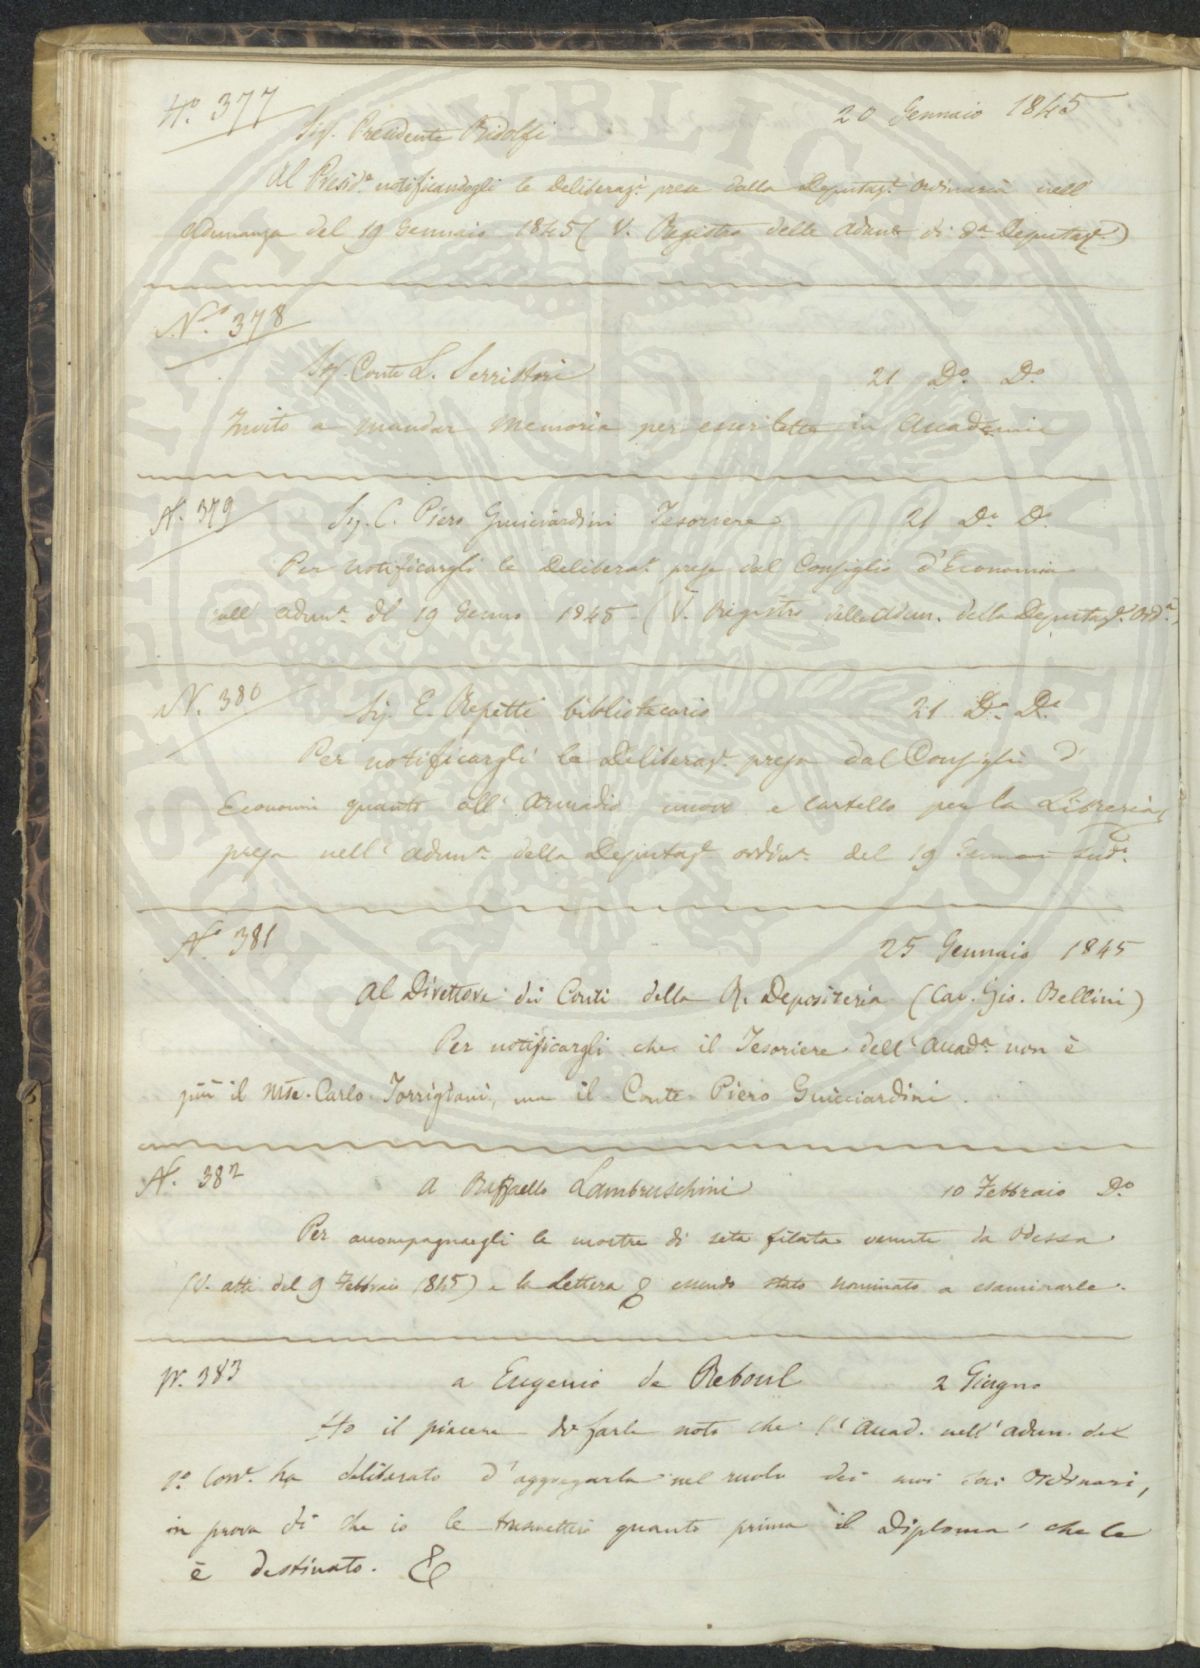 N.° 377
20 Gennaio 1845
Sig. Presidente Ridolfi
Al Presid.e notificandogli le Deliberaz.i prese dalla Deputaz.e ordinaria nell'
adunanza del 19 Gennaio 1845 (V. Registro delle adun.e di d.a Deputaz.e)
N.° 378
Sig. Conte L. Serristori 21 D.° D.°
Invito a mandar Memoria per esser letta in Accademia
N. 379 Sig. C. Piero Guicciardini Tesoriere 21 D.° D.°
Per notificargli le Deliberaz.i prese dal Consiglio d'Economia
nell' adun.a del 19 Genn.o 1845 (V. Registro delle adun. della Deputaz.e Ord.a)
N. 380 Sig. E. Repetti bibliotecario 21 D.° D.°
Per notificargli la Deliberaz.e presa dal Consiglio d'
Economia quanto all' armadio nuovo e cartello per la Libreria,
presa nell' adun.a della Deputaz.e ordin.a del 19 Gennaio sud.°
N.° 381 25 Gennaio 1845
Al Direttore dei Conti della R. Depositeria (Cav. Gio. Bellini)
Per notificargli che il Tesoriere dell' Accad.a non è
più il Mse. Carlo Torrigiani, ma il Conte Piero Guicciardini.
N. 382 A Raffaello Lambruschini 10 Febbraio D.°
Per accompagnargli le mostre di seta filata venute da Odessa
(V. atti del 9 Febbraio 1845) e la Lettera & essendo stato nominato a esaminarle.
N. 383 a Eugenio de Reboul 2 Giugno
Ho il piacere di farle noto che l' Accad. nell' adun. del
1.° Corr.e ha deliberato d'aggregarla nel ruolo dei suoi Soci Ordinari,
in prova di che io le trasmetterò quanto prima il Diploma che le
è destinato. &